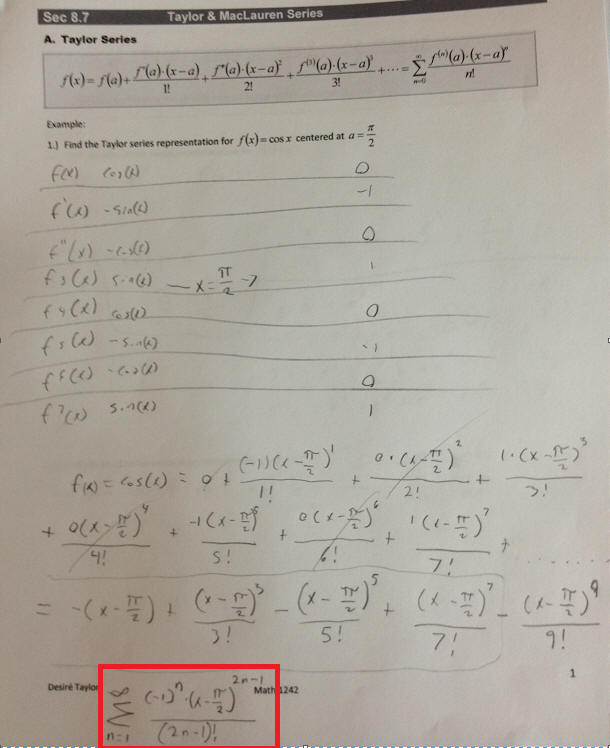 Sec 8.7 Taylor & MacLauren Series
A. Taylor Series
f(x) = f(a) + f'(a)·(x−a)/1! + f''(a)·(x−a)²/2! + f⁽³⁾(a)·(x−a)³/3! + ··· = ∑_{n=0}^{∞} f⁽ⁿ⁾(a)·(x−a)ⁿ/n!
Example:
1.) Find the Taylor series representation for f(x) = cos x centered at a = π/2
f(x) cos(x) 0
f'(x) -sin(x) -1
f''(x) -cos(x) 0
f3(x) sin(x) — x = π/2 → 1
f4(x) cos(x) 0
f5(x) -sin(x) -1
f6(x) -cos(x) 0
f7(x) sin(x) 1
f(x) = cos(x) = 0 + (-1)(x-π/2)¹/1! + 0·(x-π/2)²/2! + 1·(x-π/2)³/3!
+ 0(x-π/2)⁴/4! + -1(x-π/2)⁵/5! + 0(x-π/2)⁶/6! + 1(x-π/2)⁷/7! + ......
= -(x-π/2) + (x-π/2)³/3! - (x-π/2)⁵/5! + (x-π/2)⁷/7! - (x-π/2)⁹/9!
1
Desiré Taylor Math 1242
∑_{n=1}^{∞} (-1)ⁿ·(x-π/2)²ⁿ⁻¹/(2n-1)!